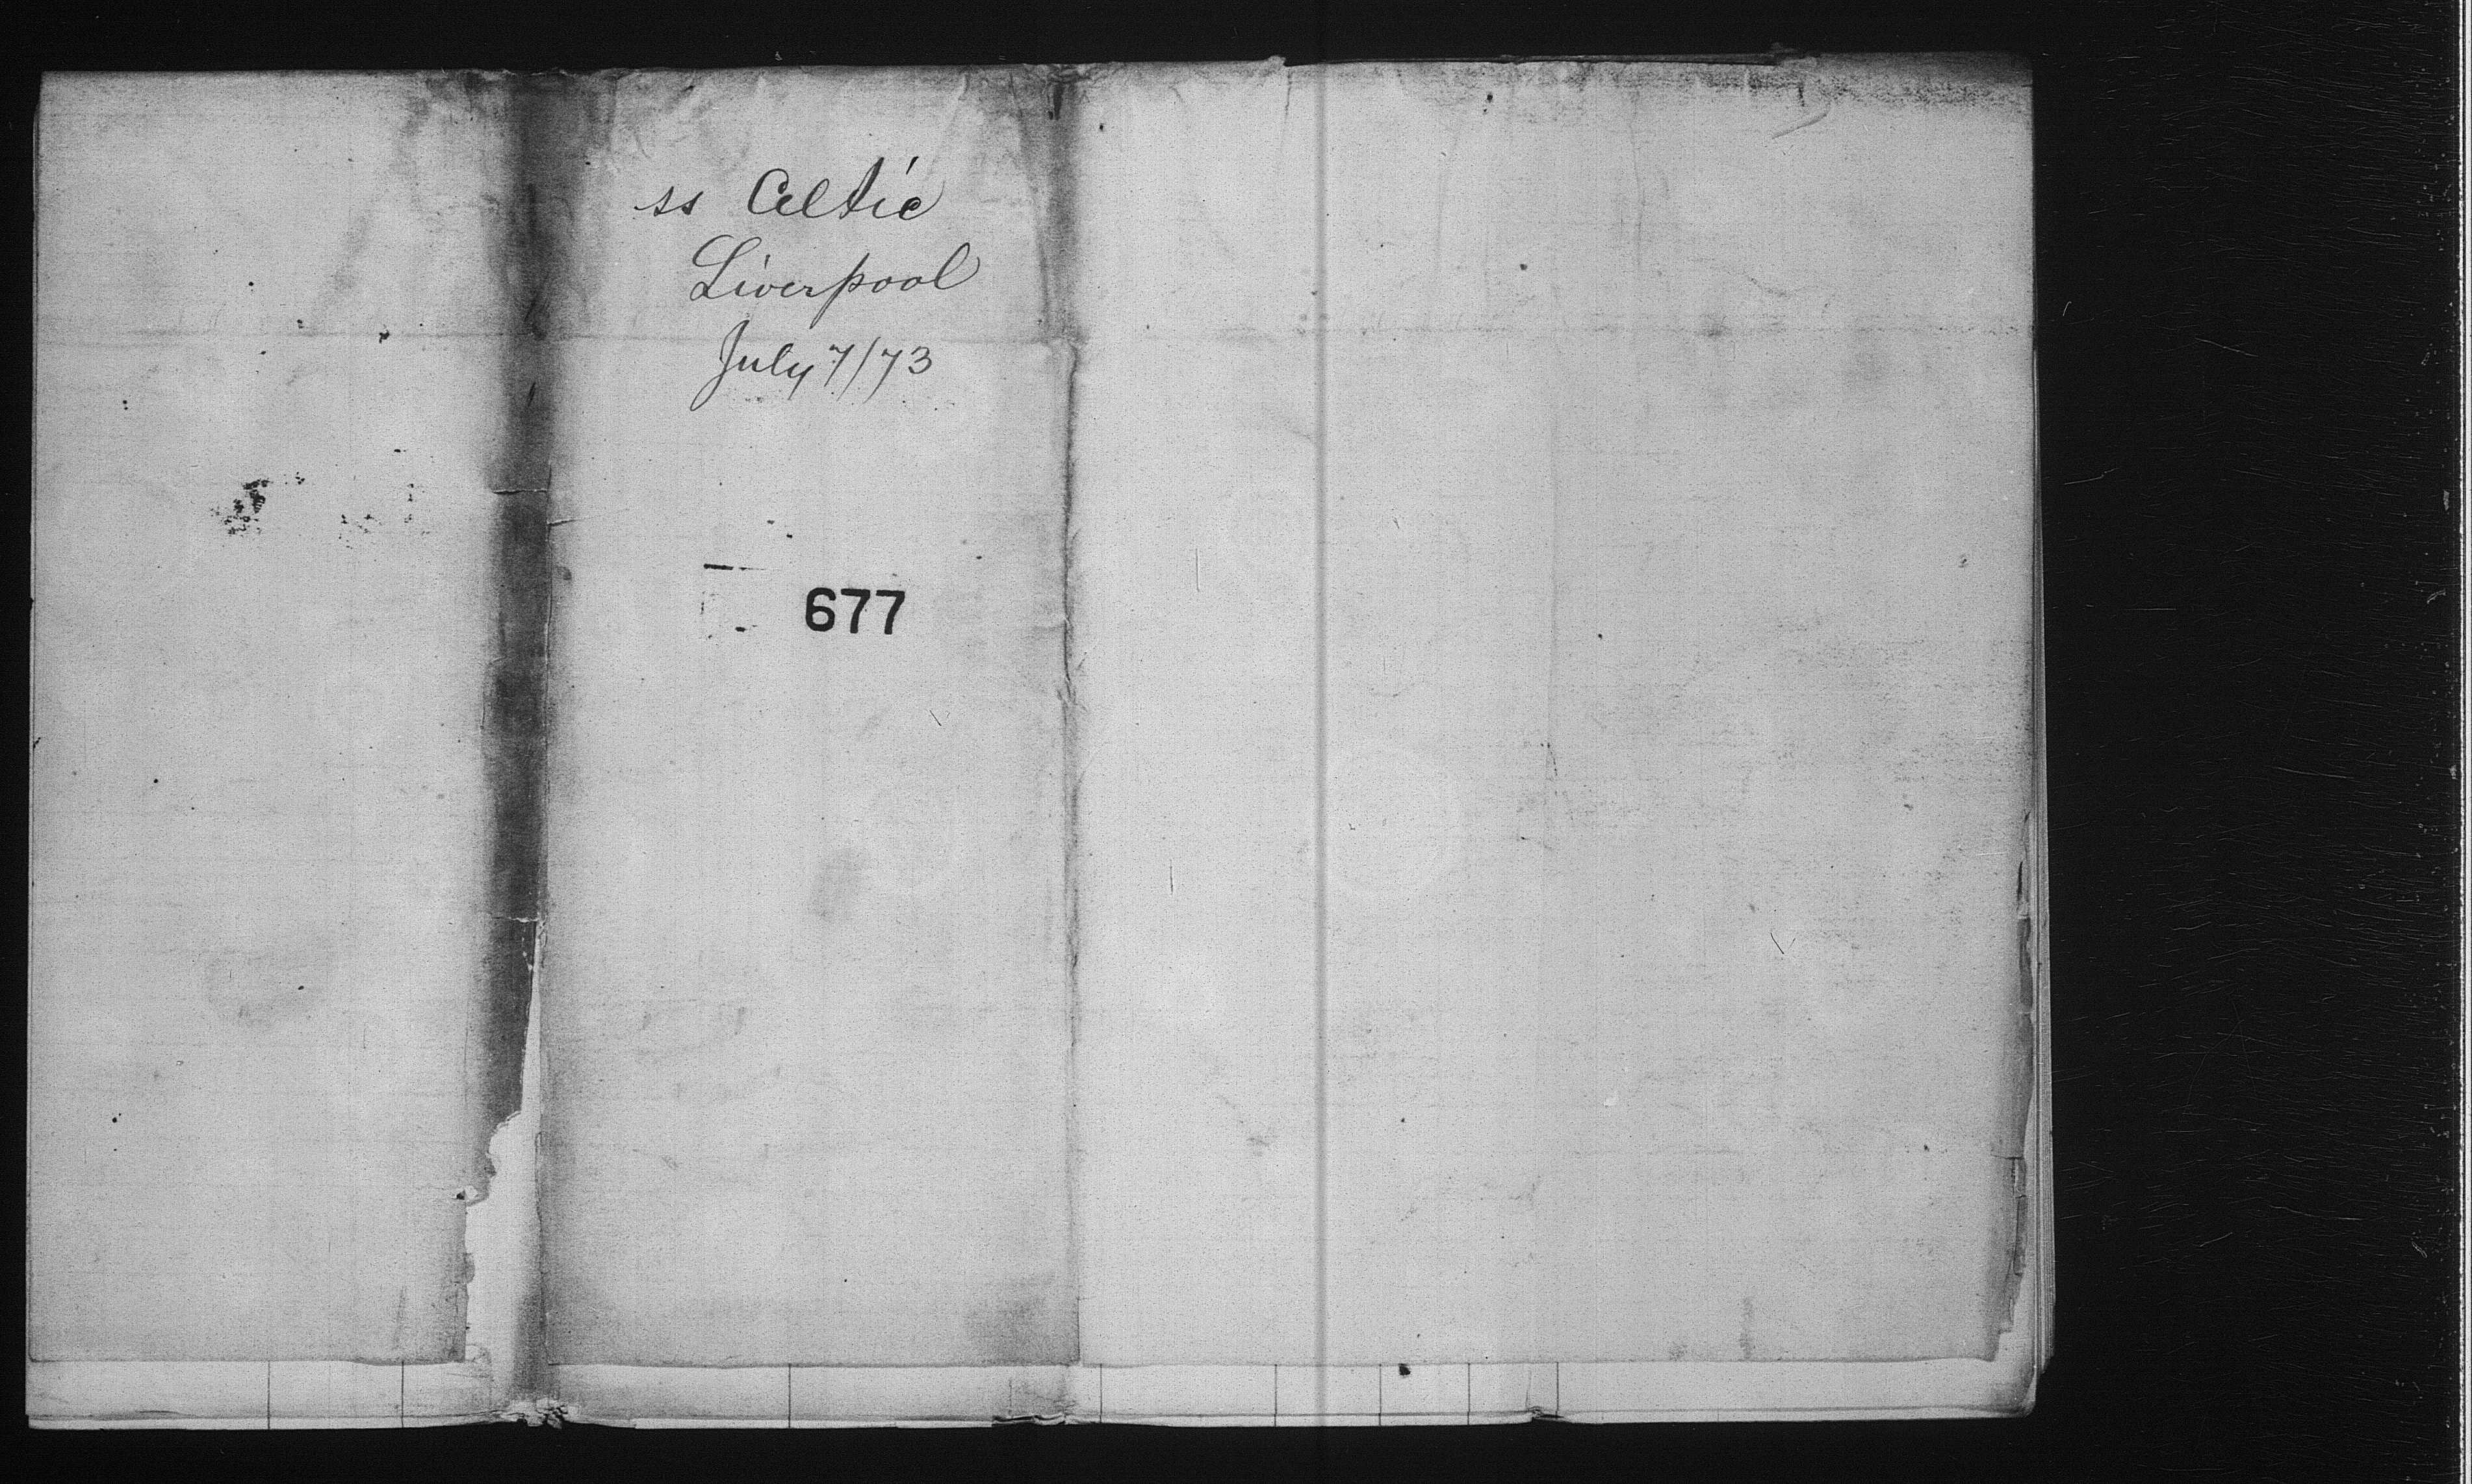 ss Celtic
Liverpool
July 7/73
677